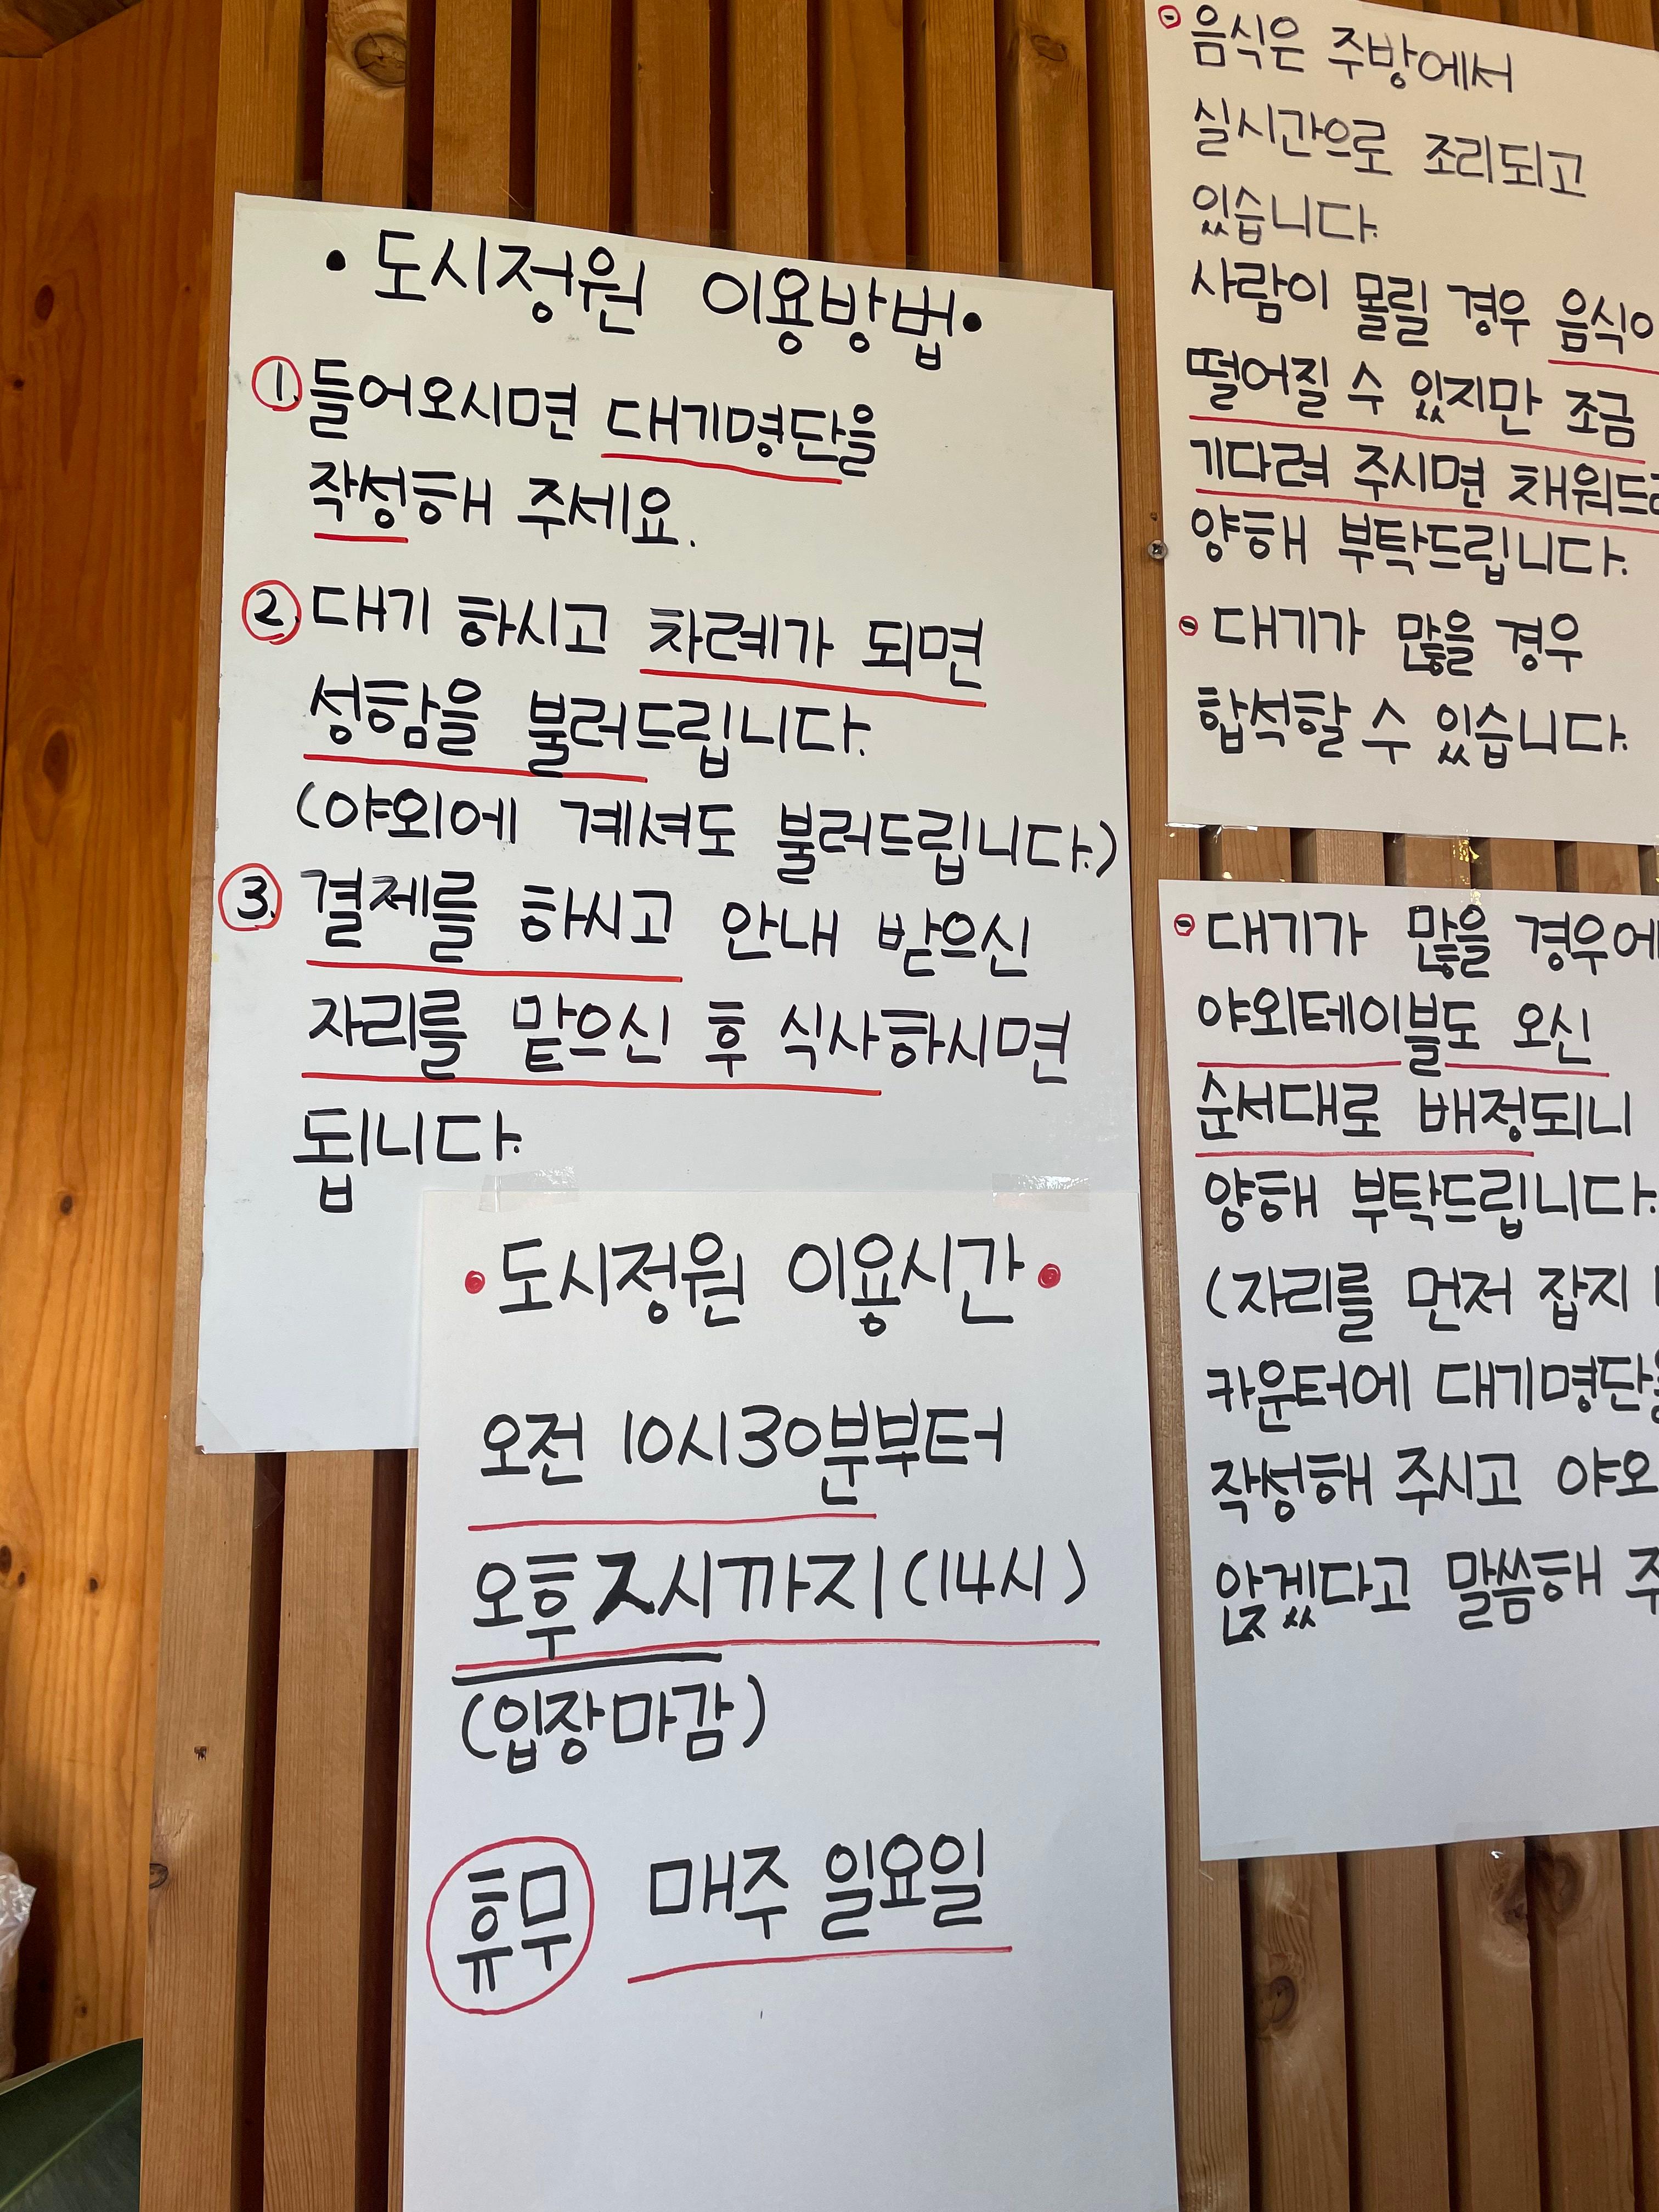 • 도시정원 이용방법 •
1. 들어오시면 대기명단을
작성해 주세요.
2. 대기 하시고 차례가 되면
성함을 불러드립니다.
(야외에 계셔도 불러드립니다.)
3. 결제를 하시고 안내 받으신
자리를 맡으신 후 식사하시면
됩니다.
• 도시정원 이용시간 •
오전 10시30분부터
오후 2시까지 (14시)
(입장마감)
휴무 매주 일요일
음식은 주방에서
실시간으로 조리되고
있습니다.
사람이 몰릴 경우 음식이
떨어질 수 있지만 조금
기다려 주시면
양해 부탁드립니다.
대기가 많을 경우
합석할 수 있습니다.
대기가 많을 경우에
야외테이블도 오신
순서대로 배정되니
양해 부탁드립니다.
(자리를 먼저 잡지
카운터에 대기명단을
작성해 주시고
앉겠다고 말씀해